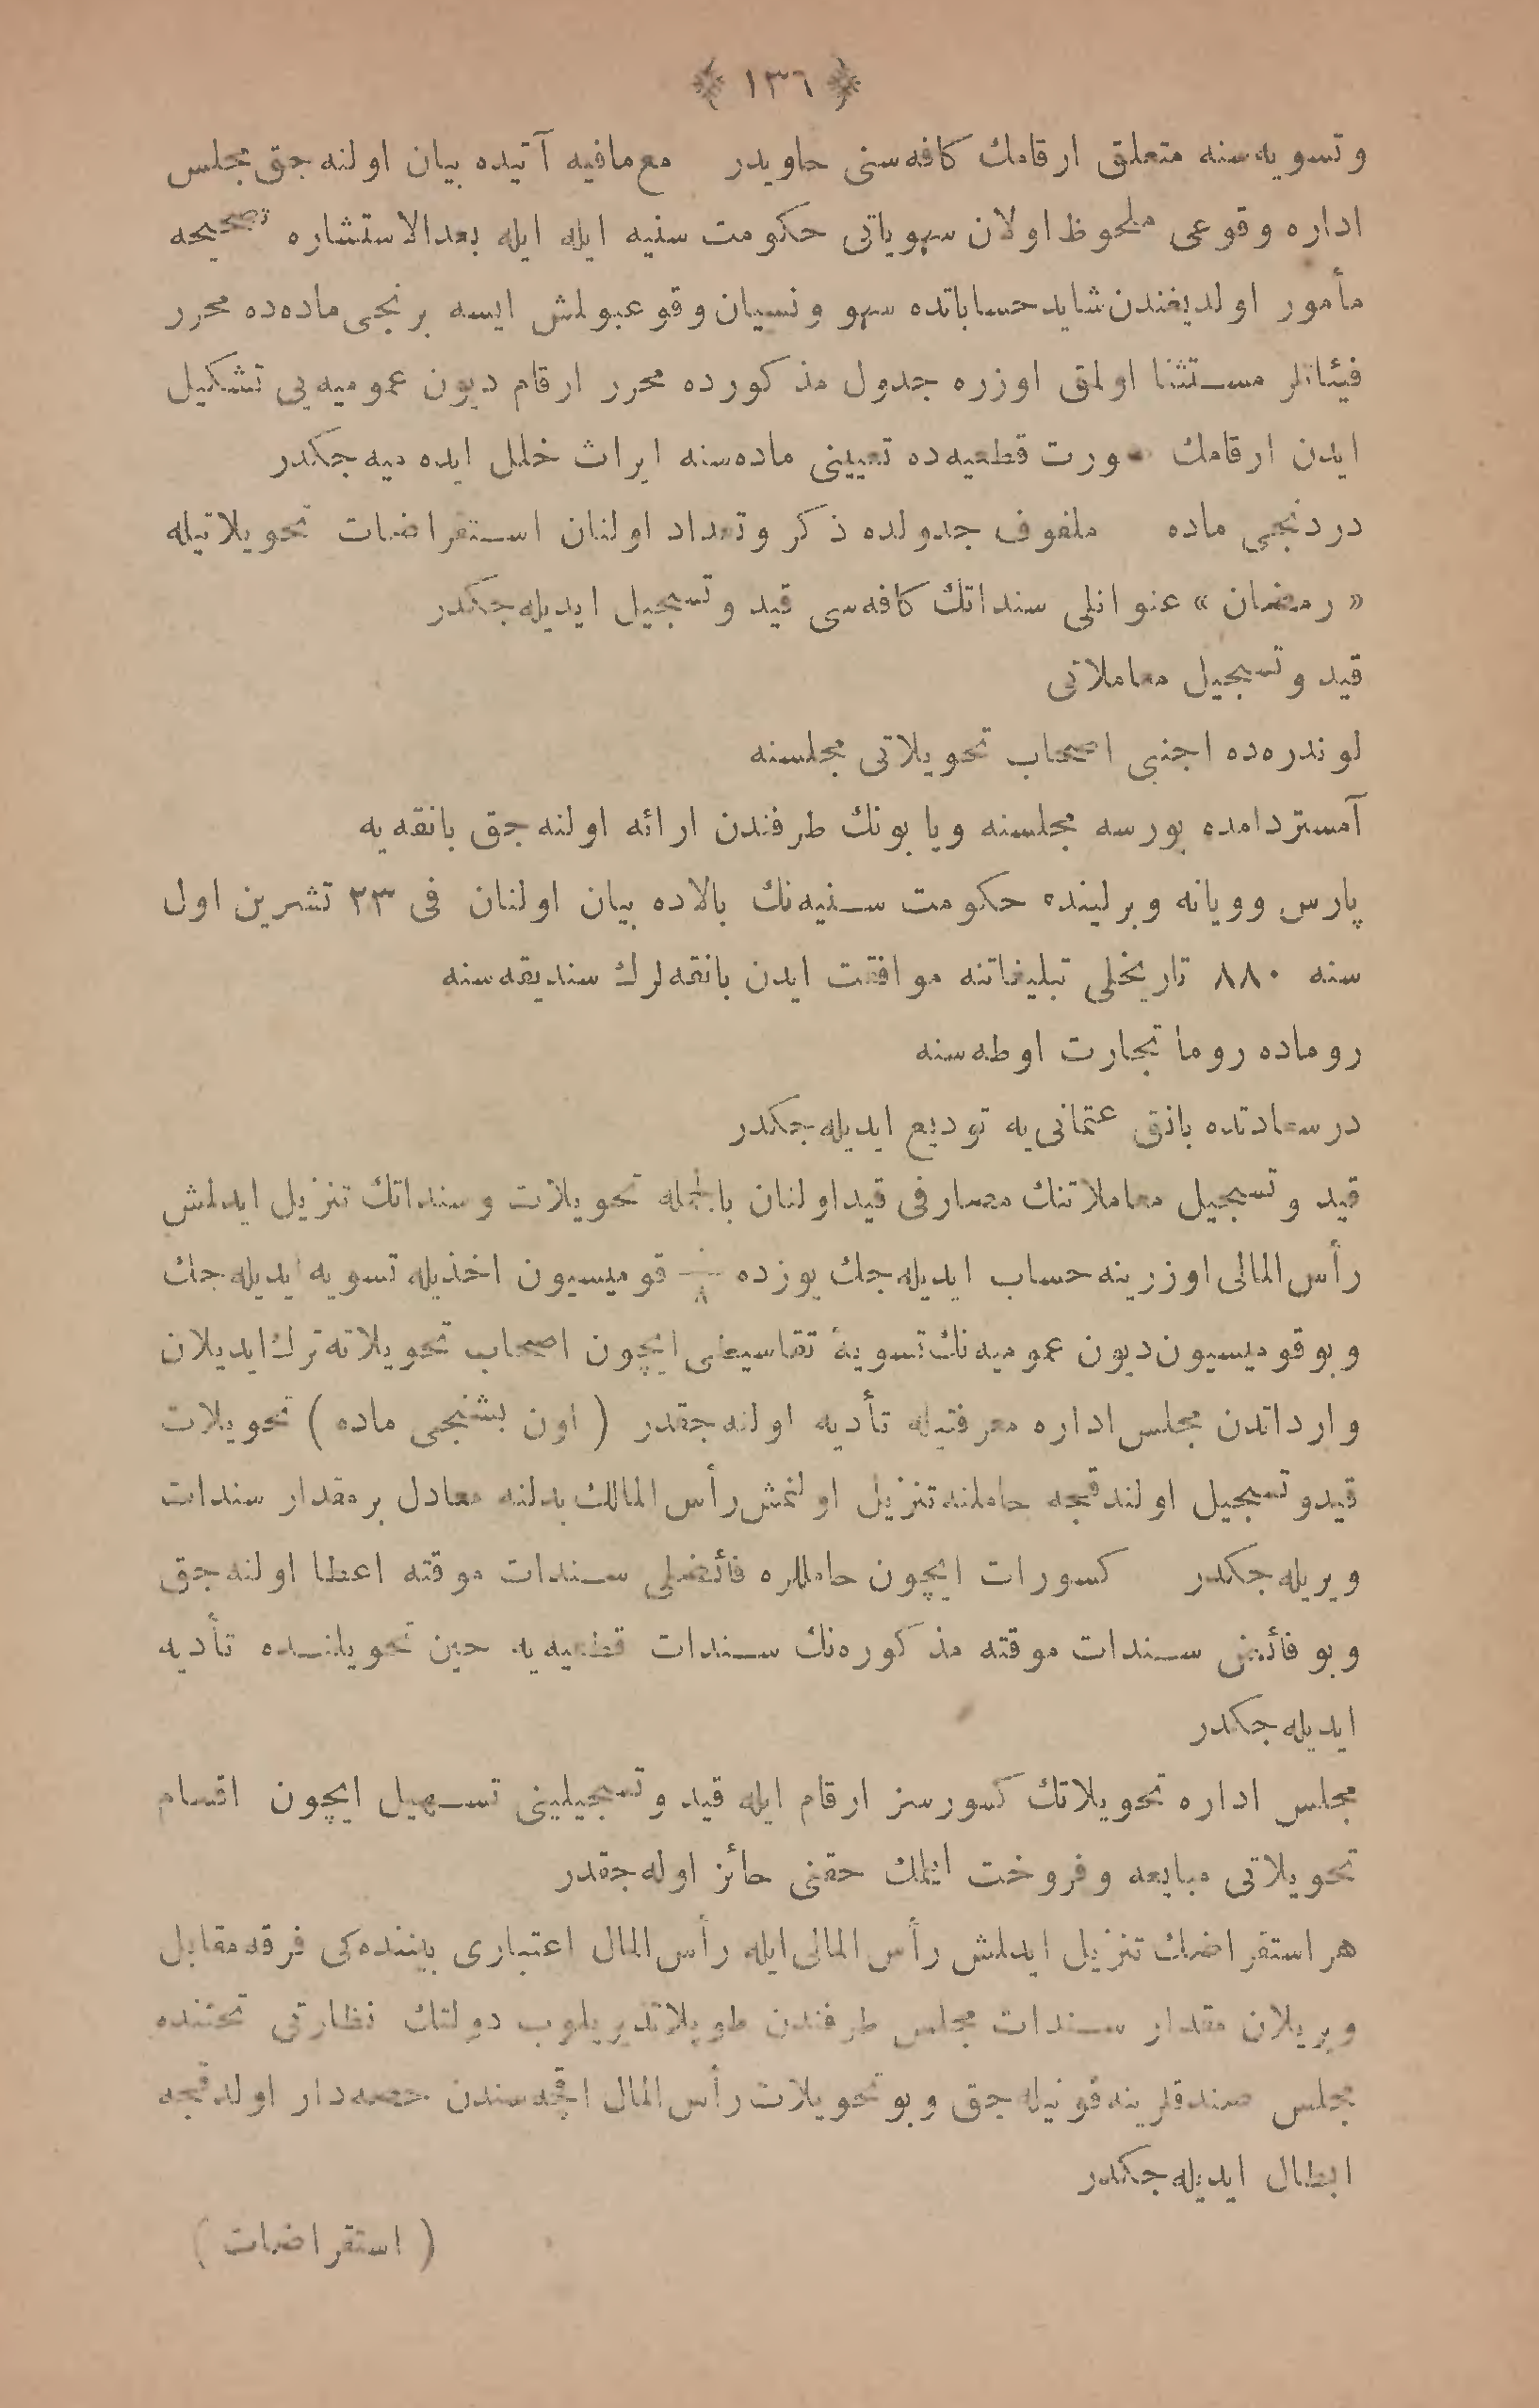 ﴿ ١٣٦ ﴾
وتسويه‌سنه متعلق ارقامك كافه‌سنی حاويدر مع‌مافيه آتيده بيان اولنه‌جق مجلس
اداره وقوعی ملحوظ اولان سهوياتی حكومت سنيه ايله ايله بعدالاستشاره تصحيحه
مأمور اولديغندن شايد حساباتده سهو ونسيان وقوعبولمش ايسه برنجی ماده‌ده محرر
فيئاتلر مستثنا اولمق اوزره جدول مذكورده محرر ارقام ديون عموميه‌يی تشكيل
ايدن ارقامك صورت قطعيه‌ده تعيينی ماده‌سنه ايراث خلل ايده‌ميه‌جكدر
دردنجی ماده ملفوف جدولده ذكر وتعداد اولنان استقراضات تحويلاتيله
« رمضان » عنوانلی سنداتك كافه‌سی قيد وتسجيل ايديله‌جكدر
قيد وتسجيل معاملاتی
لوندره‌ده اجنبی اصحاب تحويلاتی مجلسنه
آمستردامده بورسه مجلسنه ويا بونك طرفندن ارائه اولنه‌جق بانقه‌يه
پارس وويانه وبرلينده حكومت سنيه‌نك بالاده بيان اولنان فی ٢٣ تشرين اول
سنه ٨٨٠ تاريخلی تبليغاتنه موافقت ايدن بانقه‌لرك سنديقه‌سنه
روماده روما تجارت اوطه‌سنه
درسعادتده بانق عثمانی‌يه توديع ايديله‌جكدر
قيد وتسجيل معاملاتنك مصارفی قيداولنان بالجمله تحويلات وسنداتك تنزيل ايدلمش
رأس‌المالی اوزرينه حساب ايديله‌جك يوزده ١/٨ قوميسيون اخذيله تسويه ايديله‌جك
وبو قوميسيون ديون عموميه‌نك تسويۀ تقاسيطی ايچون اصحاب تحويلاته ترك ايديلان
وارداتدن مجلس اداره معرفتيله تأديه اولنه‌جقدر ( اون بشنجی ماده ) تحويلات
قيدوتسجيل اولندقجه حاملنه تنزيل اولنمش رأس‌المالك بدلنه معادل برمقدار سندات
ويريله‌جكدر كسورات ايچون حامللره فائضلی سندات موقته اعطا اولنه‌جق
وبو فائض سندات موقته مذكوره‌نك سندات قطعيه‌يه حين تحويلنده تأديه
ايديله‌جكدر
مجلس اداره تحويلاتك كسورسز ارقام ايله قيد وتسجيلينی تسهيل ايچون اقسام
تحويلاتی مبايعه وفروخت ايتمك حقنی حائز اوله‌جقدر
هر استقراضك تنزيل ايدلمش رأس‌المالی ايله رأس‌المال اعتباری بيننده‌كی فرقه مقابل
ويريلان مقدار سندات مجلس طرفندن طوپلاتديريلوب دولتك نظارتی تحتنده
مجلس صندقلرينه قونيله‌جق وبو تحويلات رأس‌المال اقچه‌سندن حصه‌دار اولدقجه
ابطال ايديله‌جكدر
( استقراضات )